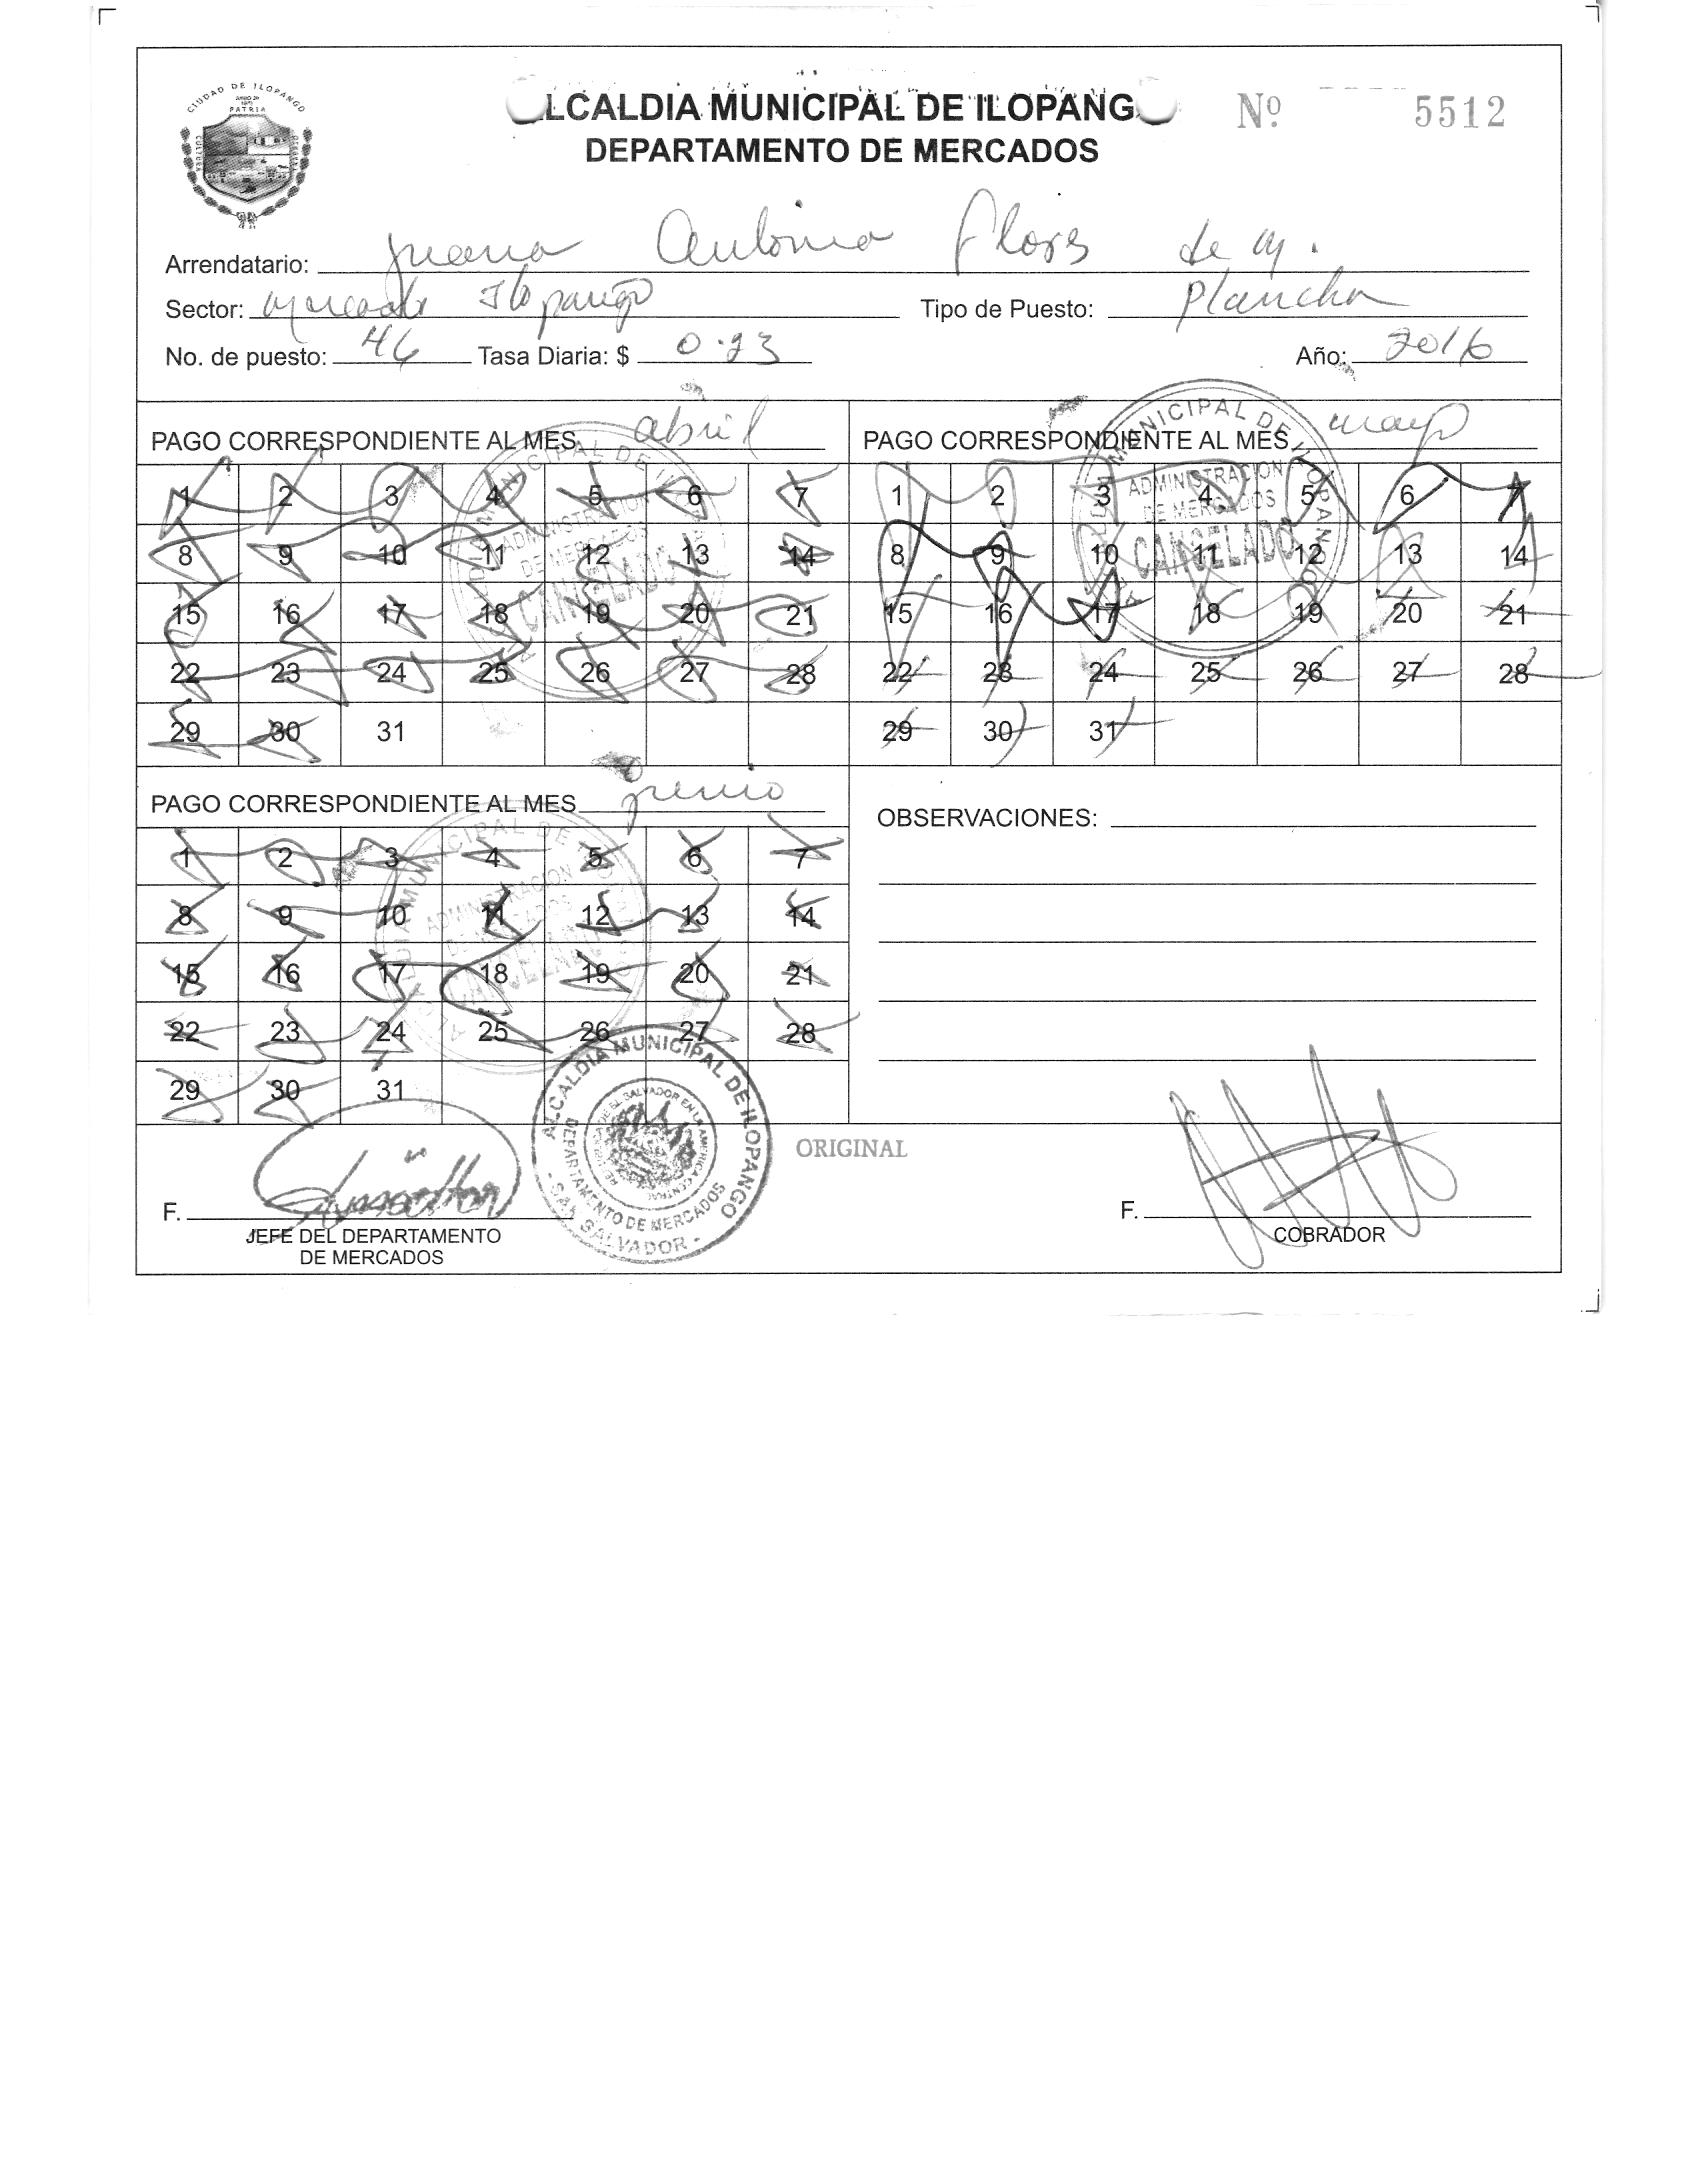 CIUDAD DE ILOPANGO
PATRIA
CULTURA
ALCALDIA MUNICIPAL DE ILOPANGO
Nº 5512
DEPARTAMENTO DE MERCADOS
Arrendatario: Juana Antonia Flores de M.
Sector: Mercado Ilopango Tipo de Puesto: Plancha
No. de puesto: 46 Tasa Diaria: $ 0.23 Año: 2016
PAGO CORRESPONDIENTE AL MES abril
1 2 3 4 5 6 7
8 9 10 11 12 13 14
15 16 17 18 19 20 21
22 23 24 25 26 27 28
29 30 31
ADMINISTRACION
DE MERCADOS
CANCELADO
PAGO CORRESPONDIENTE AL MES mayo
1 2 3 4 5 6 7
8 9 10 11 12 13 14
15 16 17 18 19 20 21
22 23 24 25 26 27 28
29 30 31
ALCALDIA MUNICIPAL DE ILOPANGO
ADMINISTRACION
DE MERCADOS
CANCELADO
PAGO CORRESPONDIENTE AL MES junio
1 2 3 4 5 6 7
8 9 10 11 12 13 14
15 16 17 18 19 20 21
22 23 24 25 26 27 28
29 30 31
ALCALDIA MUNICIPAL DE ILOPANGO
ADMINISTRACION
DE MERCADOS
CANCELADO
OBSERVACIONES:
ALCALDIA MUNICIPAL DE ILOPANGO
DEPARTAMENTO DE MERCADOS
- SAN SALVADOR -
REPUBLICA DE EL SALVADOR EN LA AMERICA CENTRAL
ORIGINAL
F.
JEFE DEL DEPARTAMENTO
DE MERCADOS
F.
COBRADOR